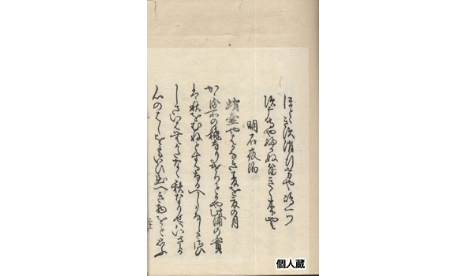 ほとゝきす消行方や嶋一つ
須磨寺やふかぬ笛きく木下やみ
明石夜泊
蛸壺やはかなき夢を夏の月
かゝる所の穐なりけりとかや此浦の實
は秋をむねとするなるへしかなしささひ
しさいはむかたなく秋なりせはいさゝか
心のはしをもいひ出へき物をと思ふ
個人蔵